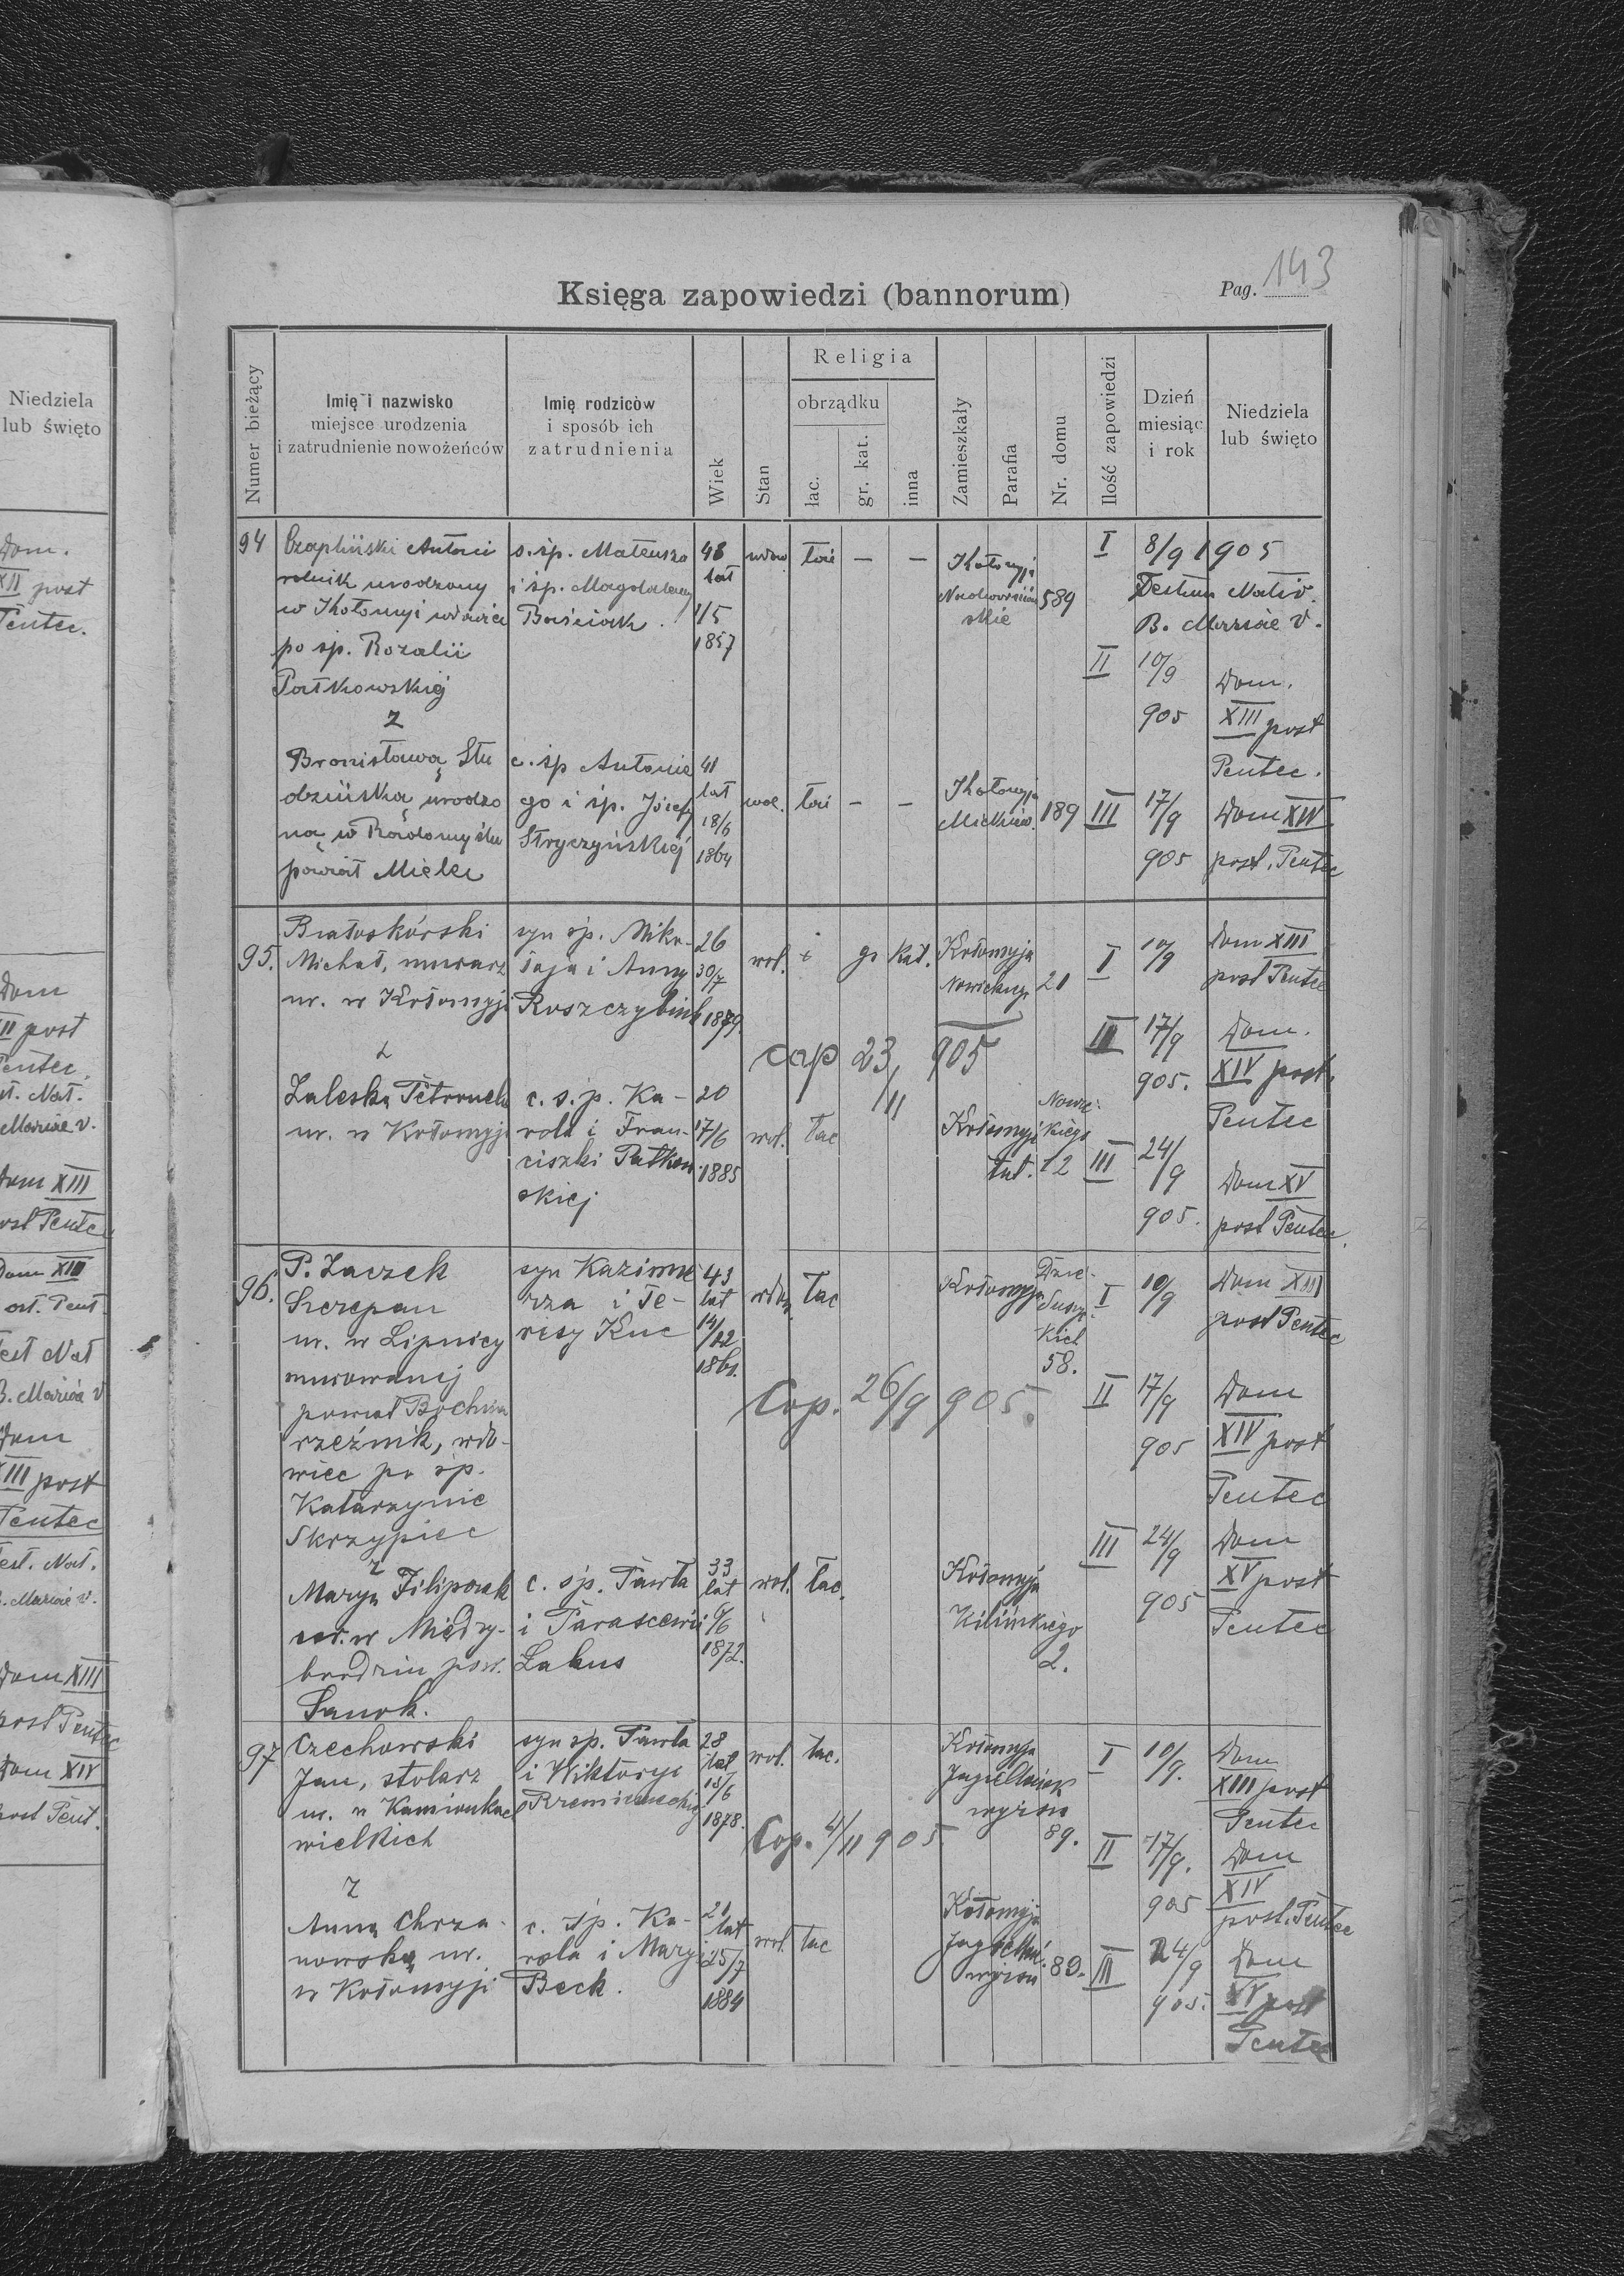 Księga zapowiedzi (bannorum)
Pag. 143
Numer bieżący
Imię i nazwisko
miejsce urodzenia
i zatrudnienie nowożeńców
Imię rodziców
i sposób ich
zatrudnienia
Wiek
Stan
Religia
obrządku
łac.
gr. kat.
inna
Zamieszkały
Parafia
Nr. domu
Ilość zapowiedzi
Dzień
miesiąc
i rok
Niedziela
lub święto
94 Czapliński Antoni s. śp. Mateusza 48 wdow. łać — — Kołomyja I 8/9 1905
rolnik urodzony i śp. Magdaleny lat 589 Festum Nativ.
w Kołomyi wdowiec Baściak. 1/5 skie B. Mariae V.
po śp. Rozalii 1857 II 10/9 Dom.
Patkowskiej 905 XIII post
z Pentec.
Bronisława Stu c. śp Antonie 41
dzińską urodzo go i śp. Józefy lat wol. łać — — Kołomyja 189 III 17/9 Dom XIV
ną w Radomyślu Stryczyńskiej 18/6 Mickiew. 905 post. Pentec
powiat Mielec 1864
95. Białoskórski syn śp. Miko- 26 wol. gr kat. Kołomyja I 10/9 Dom XIII
Michał, murarz łaja i Anny 30/7 21 post Pentec
ur. w Kołomyji 1879.
z cop 23/11 905 II 17/9 Dom.
905. XIV post.
Zaleska Petronela c. ś.p. Ka- 20 Pentec
ur. w Kołomyji rola i Fran- 17/6 wol. łac Kołomyja tut. 12 III 24/9 Dom XV
ciszki Patkow 1885 905. post Pentec.
skiej
96. P. Zaczek syn Kazimie 43 wdow. łac Kołomyja Dzie- I 10/9 Dom XIII
Szczepan rza i Te- lat duszyc- post Pentec
ur. w Lipnicy resy Kuc 14/12 kich
murowanej 1861. 58.
powiat Bochnia Cop. 26/9 905. II 17/9 Dom
rzeźnik, wdo- 905 XIV post
wiec po śp. Pentec
Katarzynie
Skrzypiec III 24/9 Dom
z 905 XV post
Marya Filipczak c. śp. Pawła 33 lat wol. łac. Kołomyja Pentec
ur. w Między- i Parascewii 6/6 Kilińskiego
brodziu pow. Łakus 1872. 2.
Sanok.
97 Czechowski syn śp. Pawła 28 wol. łac. Kołomyja I 10/9. Dom
Jan, stolarz i Wiktoryi lat XIII post
ur. w Kamionkach 15/6 Pentec
wielkich 1878. Cop. 4/11 905 89. II 17/9. Dom
z 905 XIV
Anna Chrza- c. śp. Ka- 21 lat Kołomyja post. Pentec
nowską ur. rola i Maryi 25/7 wol. łac 89. III 24/9 Dom
w Kołomyji Beck. 1884 905. XV post
Pentec
Niedziela
lub święto
Dom.
XII post
Pentec.
Dom
post
Pentec.
Mariae V.
Dom XIII
post Pentec
Dom XIII
Pent.
Fest Nat
B. Mariae V
Dom
XIII post
Pentec
Fest. Nat.
B. Mariae V.
Dom XIII
post Pentec
Dom XIV
post Pent.